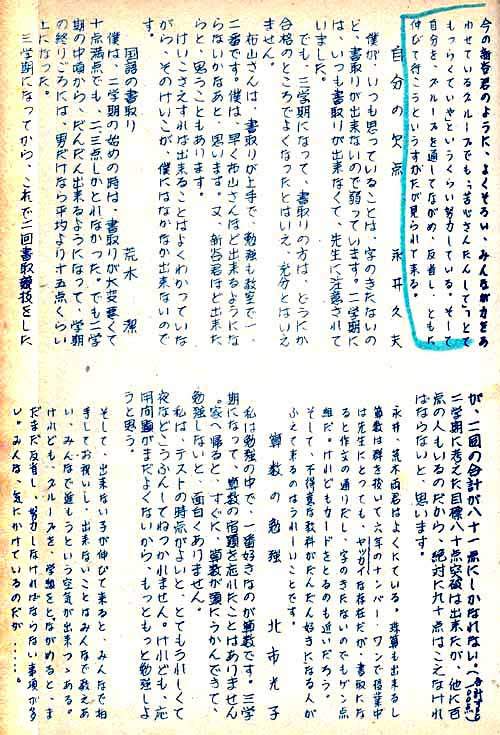 今の新谷君のように、よくそろい、みんなが力をあ
わせているグループでも、"苦心さんたんして"とても
もっらくていや"というくらい努力している。そして
自分を、グループを通してながめ、反省し、ともに
伸びて行こうというすがたが見られて来る。
自分の欠点 永井久夫
僕が、いつも思っていることは、字のきたないの
と、書取りが出来ないので弱っています。二学期に
は、いつも書取りが出来なくて、先生に注意されて
いました。
でも、三学期になって、書取りの方は、どうにか
合格のところでよくなったとはいえ、充分とはいえ
ません。
布山さんは、書取りが上手で、勉強も教室で一、
二番です。僕は、早く布山さんほど出来るようにな
らないかなあと、思います。又、新谷君ほど出来た
らと、思うこともあります。
けいこさえすれば出来ることはよくわかっていな
がら、そのけいこが、僕にはなかなか出来ないので
す。
国語の書取り 荒木潔
僕は、二学期の始めの時は、書取りが大変悪くて
十点満点でも、二、三点しかとれなかった。でも二学
期の中頃から、だんだん出来るようになって、学期
の終りごろには、男だけなら平均より十五点くらい
上になった。
三学期になってから、これで二回書取競技をした
が、二回の合計が八十一点にしかなれない。
二学期に考えた目標八十点突破は出来たが、他に百
点の人もいるのだから、絶対に九十点はこえなけれ
ばならないと、思います。
永井、荒木両君はよくにている。珠算も出来るし
算数は群を抜いて六年のナンバーワンで授業中
は先生にとっても、ヤッカイな存在だが、書取にな
ると作文の通りだし、字のきたないのでもゲン点
組だ。けれどもカードをとるのも近いだろう。
そして、不得意な教科がだんだん好きになる人が
ふえて来るのはうれしいことです。
算数の勉強 北市光子
私は勉強の中で、一番好きなのが算数です。三学
期になって、算数の宿題を忘れたことはありません
。家へ帰ると、すぐに、算数が頭にうかんできて、
勉強しないと、面白くありません。
私は、テストの時点がよいと、とてもうれしくて
夜などこうふんしてねつかれません。けれども、応
用問題がまだよくないから、もっともっと勉強しよ
うと思う。
そして、出来ない子が伸びて来ると、みんなで拍
手してお祝いし、出来ないことはみんなで教えあ
い、みんなで進もうという空気が出来つゝある。
けれども、グループを、学級をとながめるとま
だまだ反省し、努力しなければならない事項が多
い。みんな、気にかけているのだが……。